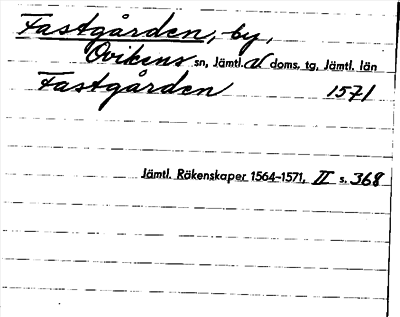 Fastgården, by,
Ovikens sn, Jämtl. V doms. tg, Jämtl. län
Fastgården 1571
Jämtl. Räkenskaper 1564-1571, II s. 368